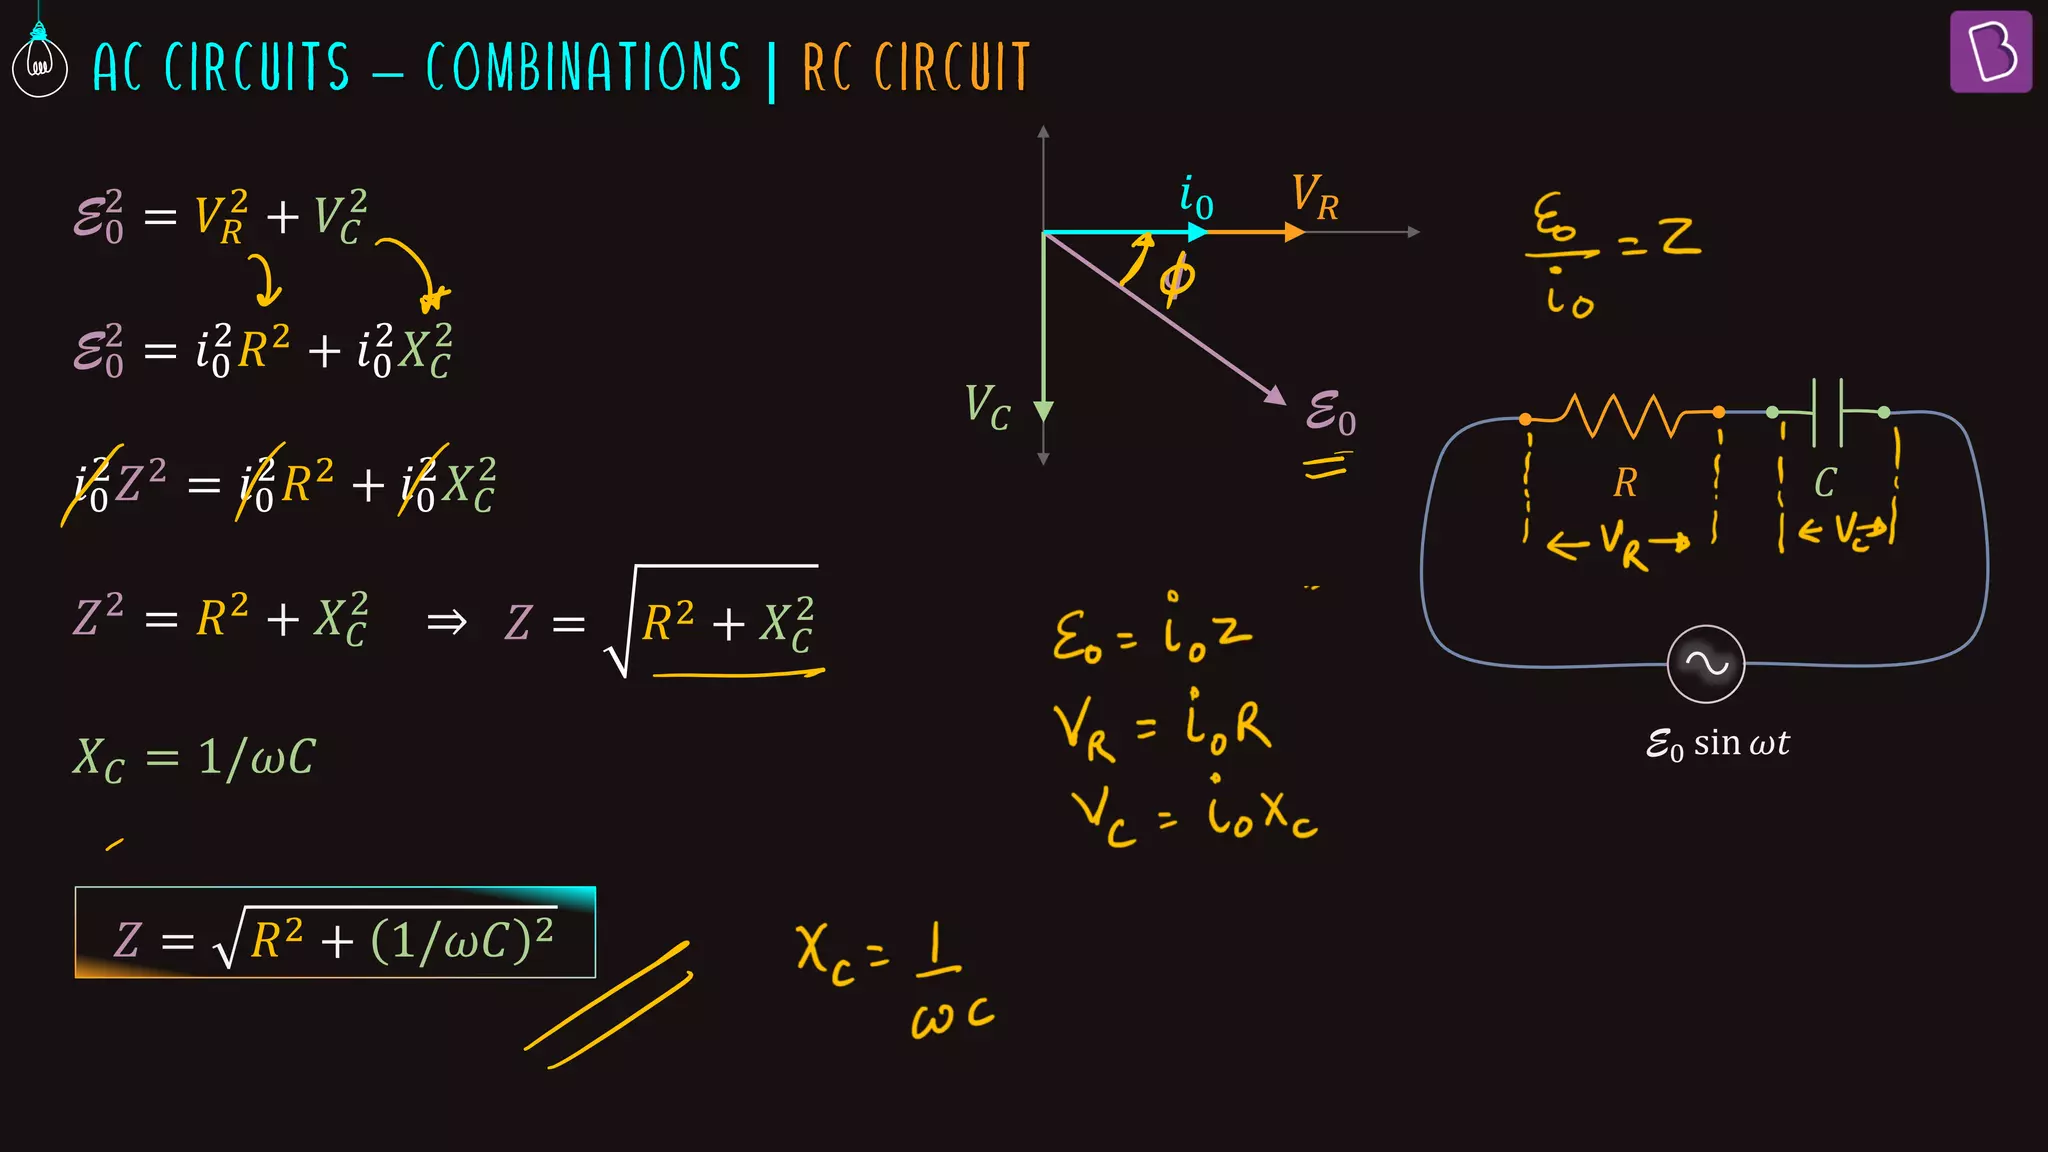 AC CIRCUITS – COMBINATIONS | RC CIRCUIT
B
ℰ₀² = V_R² + V_C²
ℰ₀² = i₀²R² + i₀²X_C²
i₀²Z² = i₀²R² + i₀²X_C²
Z² = R² + X_C² ⇒ Z = √(R² + X_C²)
X_C = 1/ωC
Z = √(R² + (1/ωC)²)
i₀ V_R
ϕ
V_C
ℰ₀
ℰ₀/i₀ = Z
R C
← V_R → ← V_C →
ℰ₀ sin ωt
ℰ₀ = i₀Z
V_R = i₀R
V_C = i₀X_C
X_C = 1/ωC